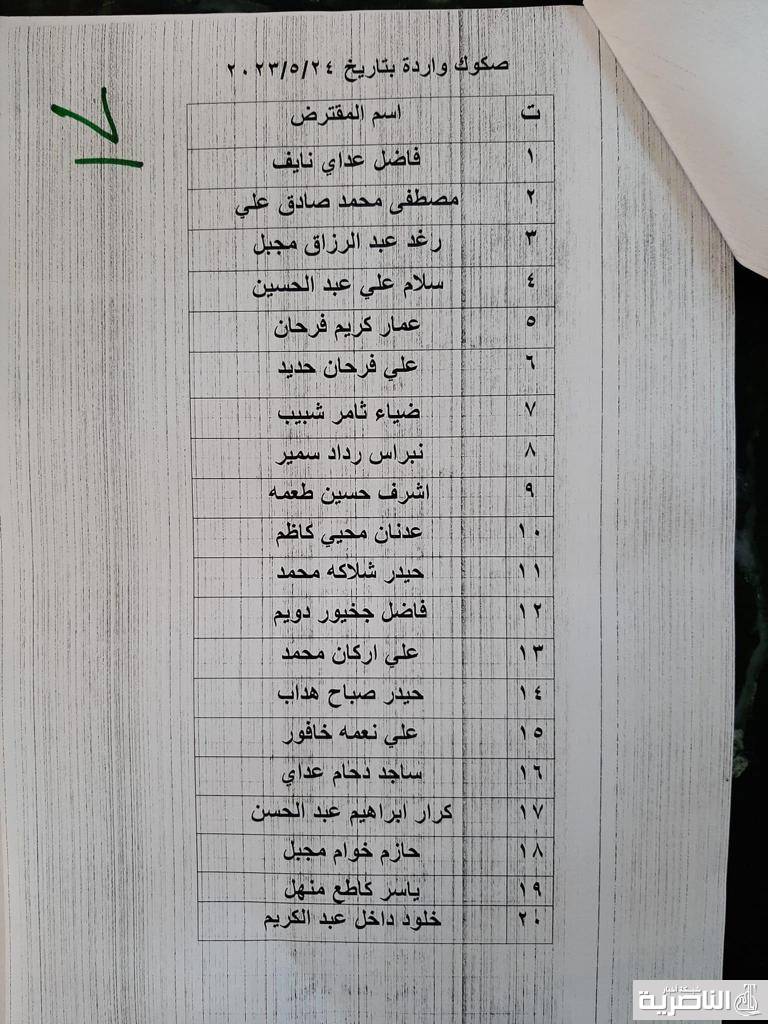 صكوك واردة بتاريخ ٢٠٢٣/٥/٢٤
ت اسم المقترض
١ فاضل عداي نايف
٢ مصطفى محمد صادق علي
٣ رغد عبد الرزاق مجبل
٤ سلام علي عبد الحسين
٥ عمار كريم فرحان
٦ علي فرحان حديد
٧ ضياء ثامر شبيب
٨ نبراس رداد سمير
٩ اشرف حسين طعمه
١٠ عدنان محيي كاظم
١١ حيدر شلاكه محمد
١٢ فاضل جخيور دويم
١٣ علي اركان محمد
١٤ حيدر صباح هداب
١٥ علي نعمه خافور
١٦ ساجد دحام عداي
١٧ كرار ابراهيم عبد الحسن
١٨ حازم خوام مجبل
١٩ ياسر كاطع منهل
٢٠ خلود داخل عبد الكريم
شبكة أخبار
الناصرية